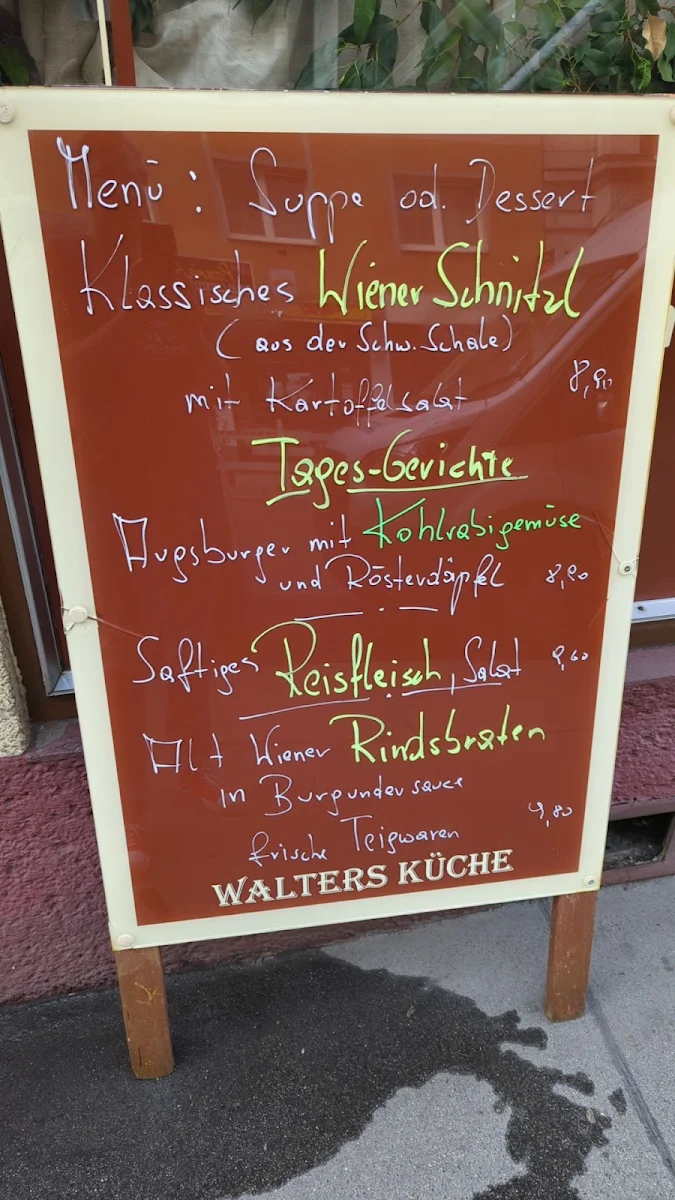 Menü: Suppe od. Dessert
Klassisches Wiener Schnitzl
(aus der Schw. Schale)
mit Kartoffelsalat 8,90
Tages-Gerichte
Augsburger mit Kohlrabigemüse
und Rösterdäpfel 8,90
Saftiges Reisfleisch, Salat
Alt Wiener Rindsbraten
in Burgundersauce
frische Teigwaren 9,80
WALTERS KÜCHE